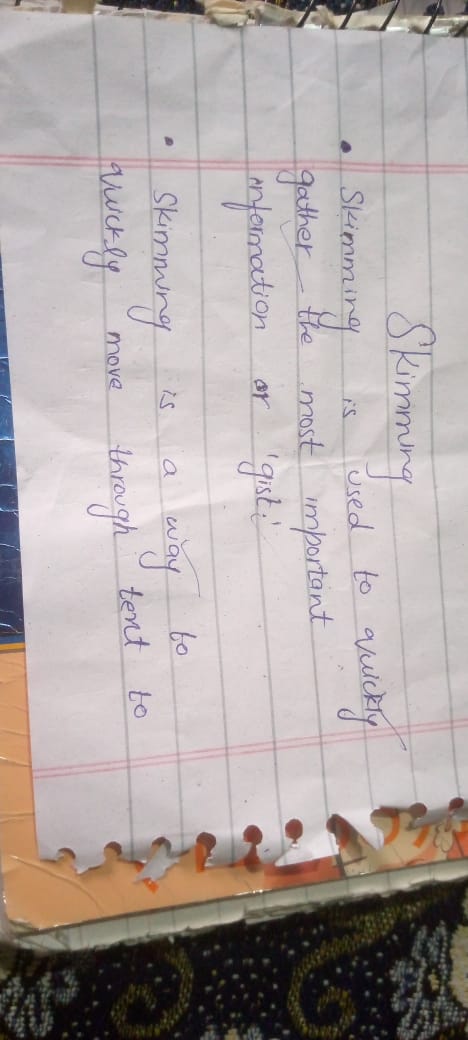 Skimming
• Skimming is used to quickly
gather the most important
information or 'gist.'
• Skimming is a way to
quickly move through text to